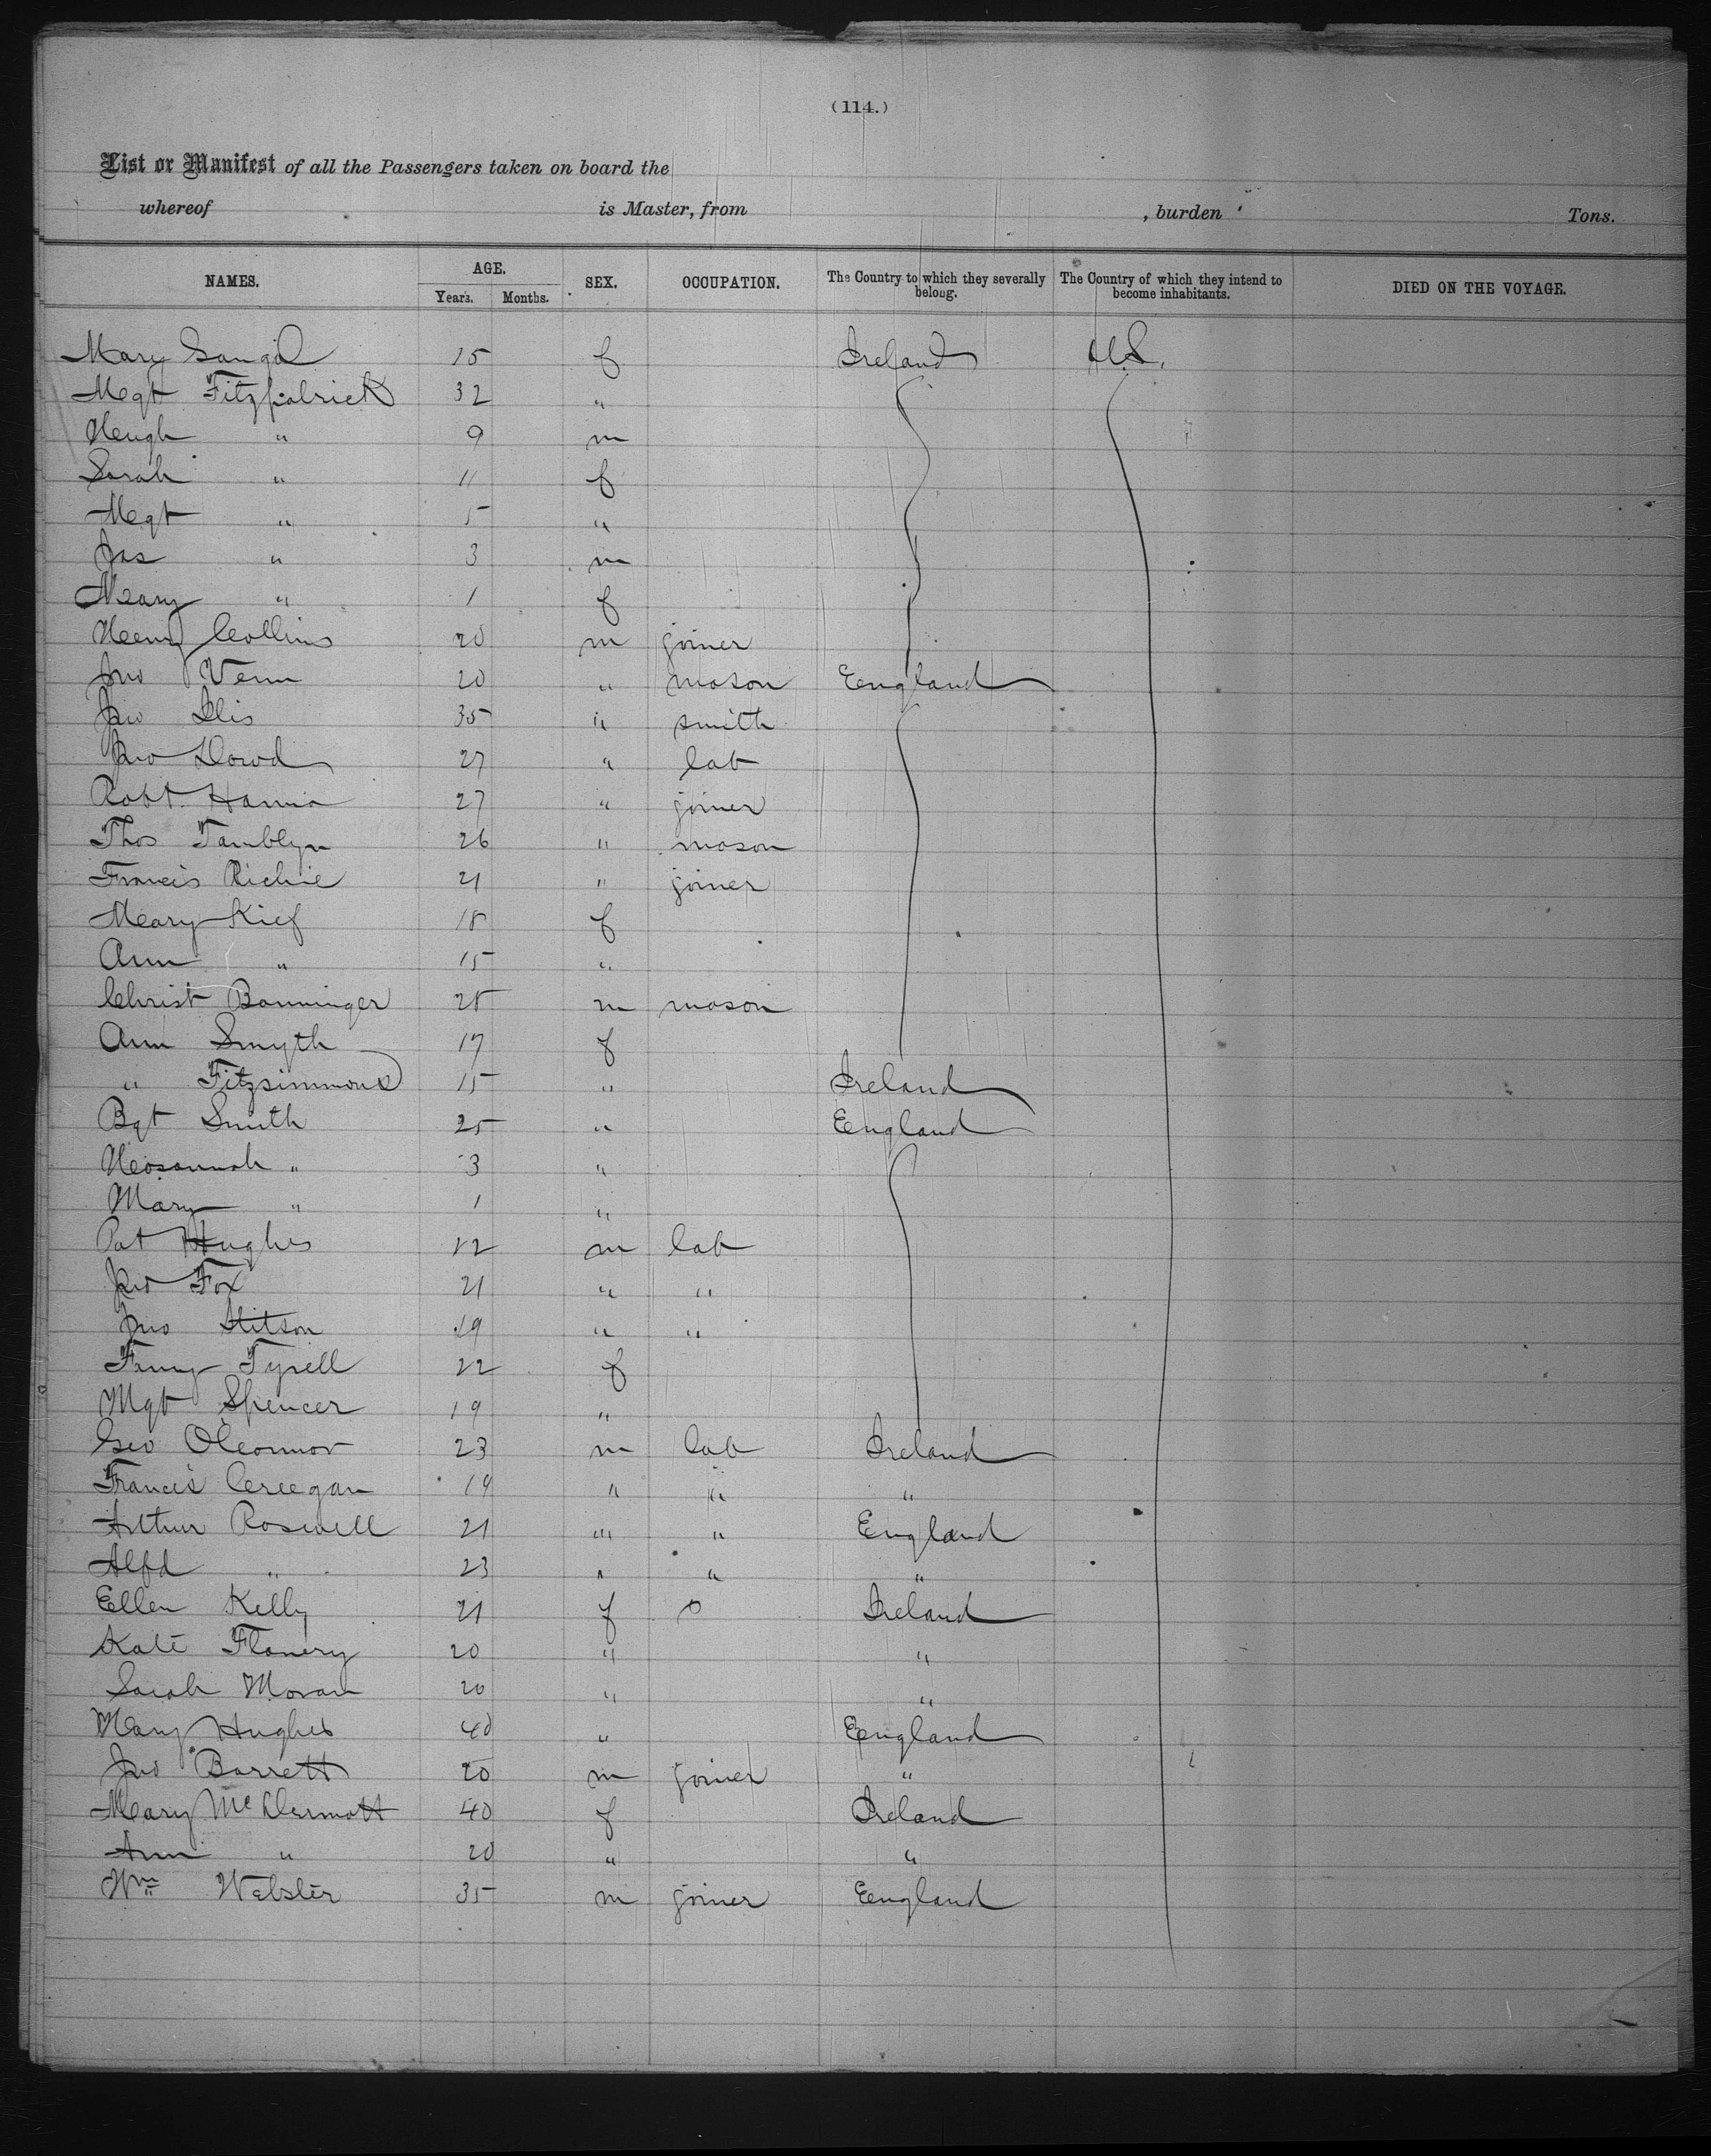 (114.)
List or Manifest of all the Passengers taken on board the
whereof is Master, from , burden Tons.
NAMES. AGE. Years. Months. SEX. OCCUPATION. The Country to which they severally belong. The Country of which they intend to become inhabitants. DIED ON THE VOYAGE.
Mary 15 f Ireland U.S.
Mgt Fitzpatrick 32 "
Hugh " 9 m
Sarah " 11 f
Mgt " 5 "
Jas " 3 m
Mary " 1 f
Henry Collins 20 m joiner
Jno Venn 20 " mason England
Jno 35 " smith
Jno Dowd 27 " lab
Robt Hanna 27 " joiner
Thos Tamblyn 26 " mason
Francis Richie 21 " joiner
Mary Kief 18 f
Ann " 15 "
Christ Banninger 28 m mason
Ann Smyth 17 f
" Fitzsimmons 15 " Ireland
Bgt Smith 25 " England
Hosannah " 3 "
Mary " 1 "
Pat Hughes 22 m lab
Jno Fox 21 " "
Jno Stitson 19 " "
Fanny Tyrell 22 f
Mgt Spencer 19 "
Geo OConnor 23 m lab Ireland
Francis Creegan 19 " " "
Arthur Roswell 21 " " England
Alfd " 23 " " "
Ellen Kelly 21 f Ireland
Kate Flanery 20 " "
Sarah Moran 20 " "
Mary Hughes 40 " England
Jno Barrett 20 m joiner "
Mary McDermott 40 f Ireland
Ann " 20 " "
Wm Webster 35 m joiner England